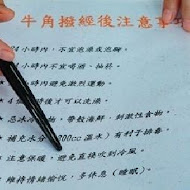 牛角撥經後注意事項
小時內,不宜泡澡或泡腳。
小時內不宜喝酒、抽菸。
小時內避免激烈運動。
* 4個小時後才可以洗澡。
忌冰冷食物、帶殼海鮮、刺激性食物。
* 補充水分 00cc溫水)有利于排毒。
注意保暖,避免直接吹到冷風。
維持情緒愉悅,多休息(睡眠)。